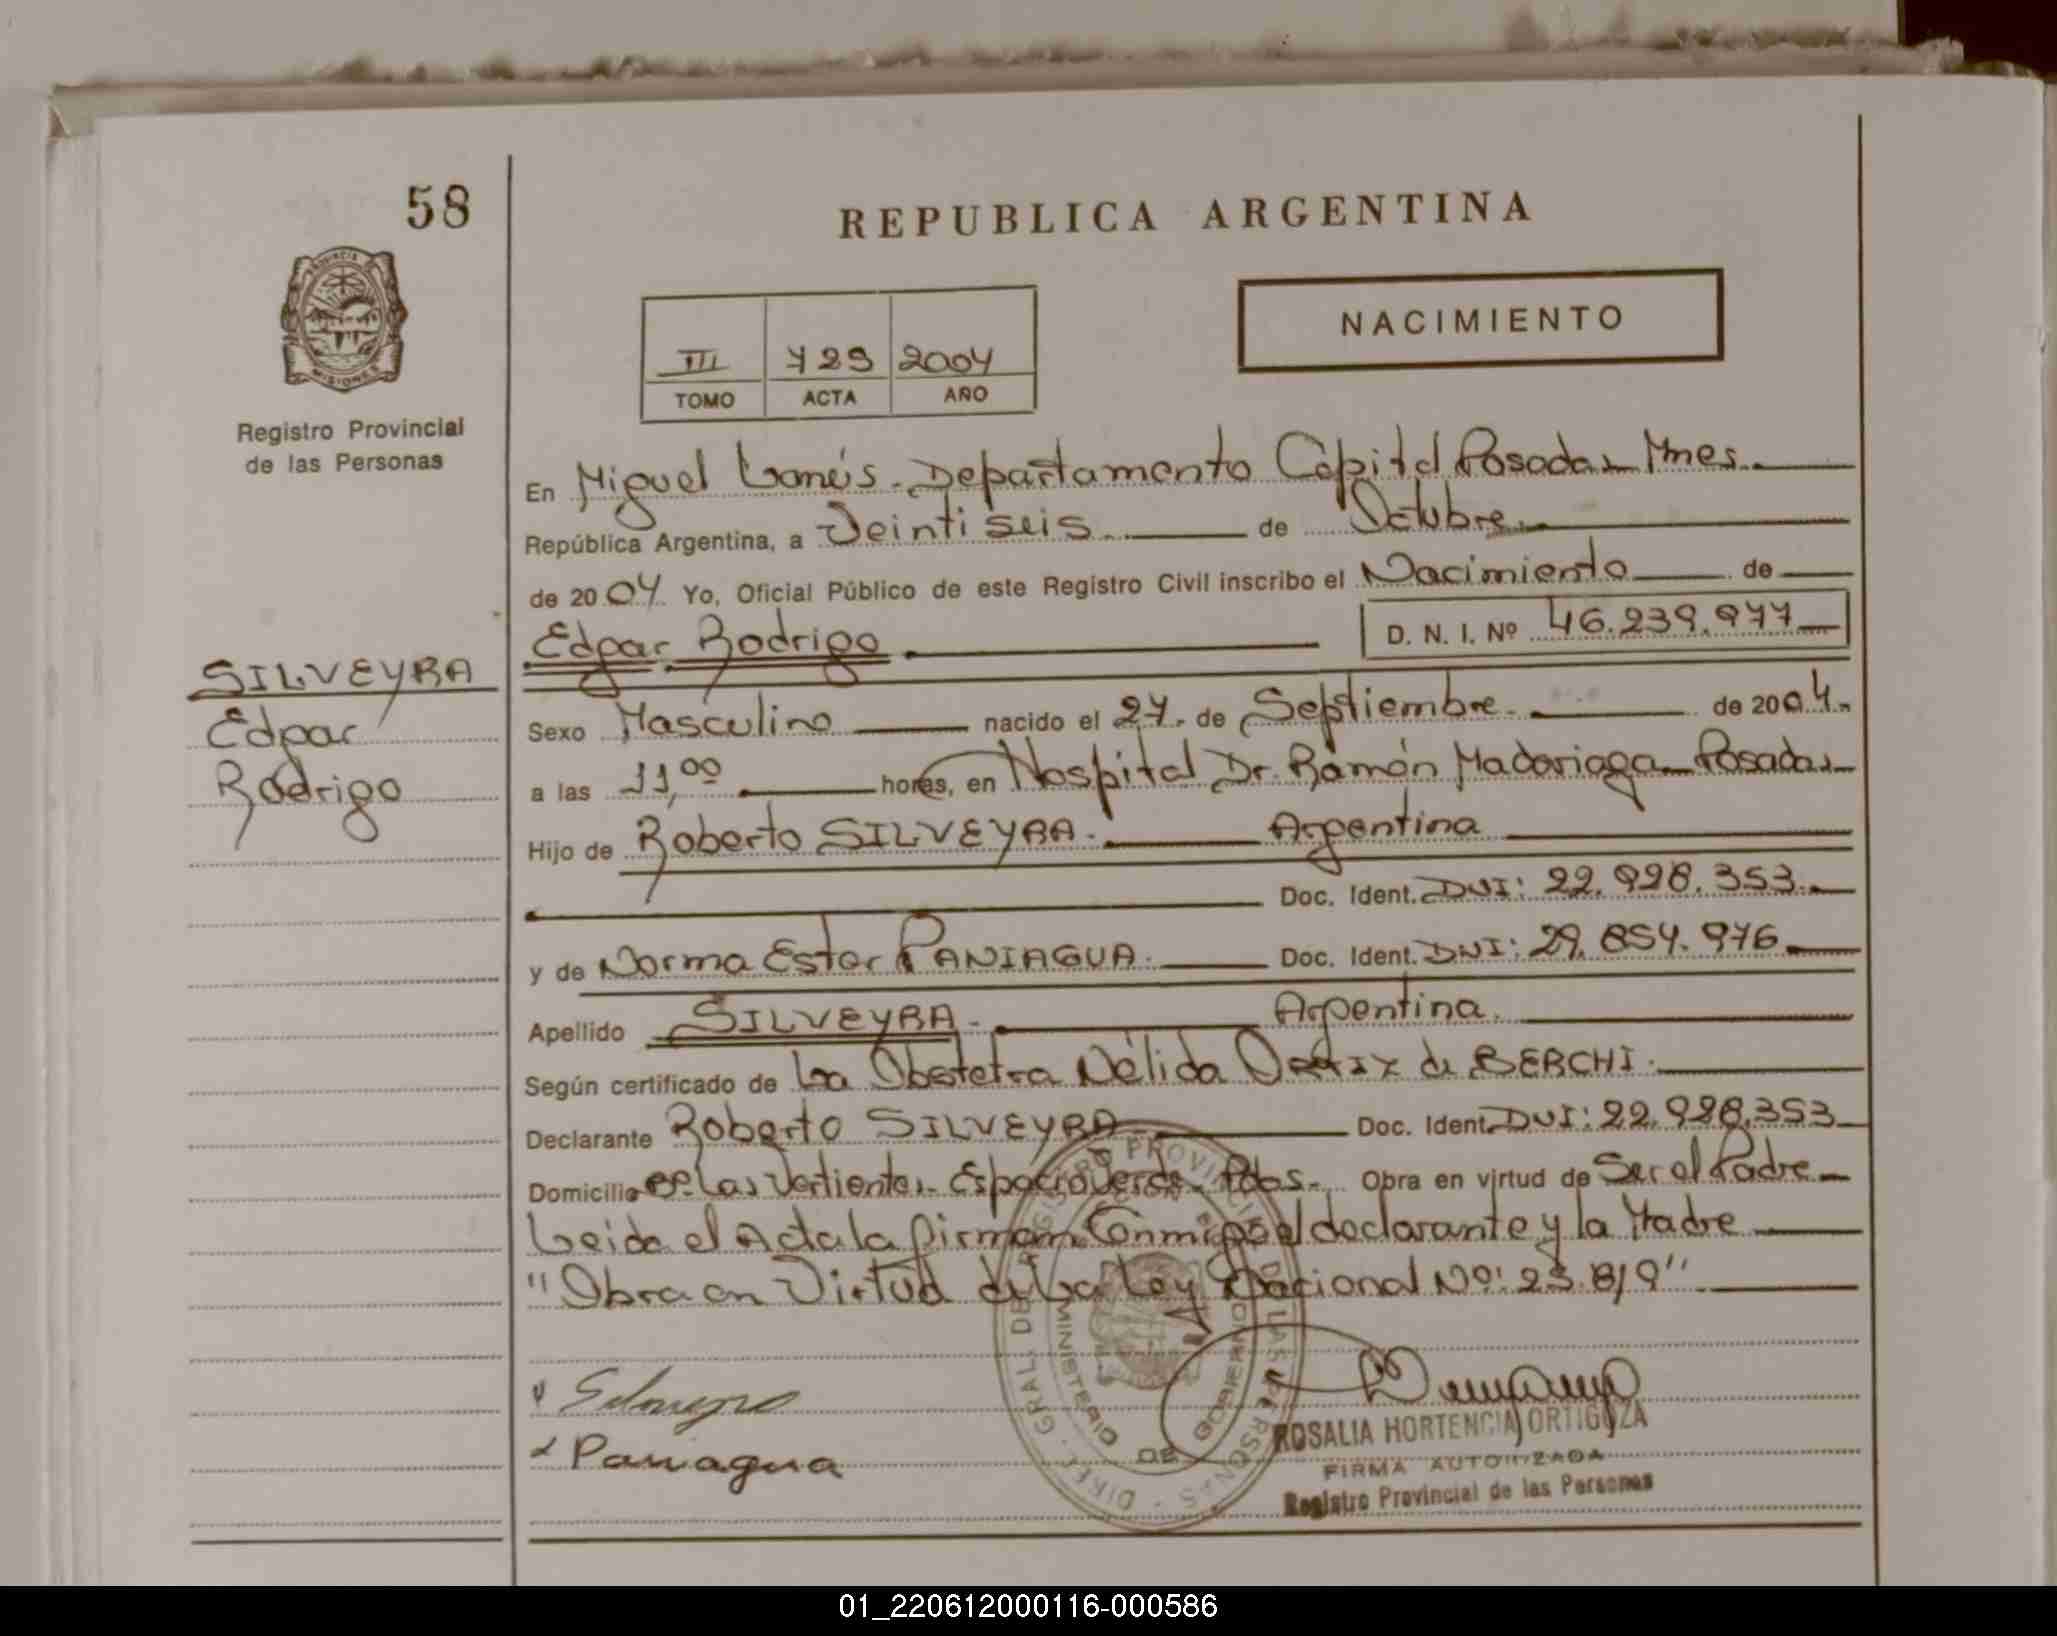 58
REPUBLICA ARGENTINA
PROVINCIA
MISIONES
NACIMIENTO
III 729 2004
TOMO ACTA AÑO
Registro Provincial
de las Personas
En Miguel Lanús. Departamento Capital Posadas Mnes.
República Argentina, a Veintiseis de Octubre.
de 2004 Yo, Oficial Público de este Registro Civil inscribo el Nacimiento de
Edgar Rodrigo D. N. I. Nº 46.239.977
SILVEYRA
Edgar
Rodrigo
Sexo Masculino nacido el 27. de Septiembre. de 2004.
a las 11,00 horas, en Hospital Dr. Ramón Madariaga Posadas
Hijo de Roberto SILVEYRA. Argentina
Doc. Ident. DNI: 22.928.353.
y de Norma Ester PANIAGUA. Doc. Ident. DNI: 29.854.976
Apellido SILVEYRA. Argentina.
Según certificado de La Obstetra Nélida ORTIZ de BERCHI.
Declarante Roberto SILVEYRA Doc. Ident. DNI: 22.928.353
Domicilio Bº Las Vertientes. Espacio Verde. Pdas. Obra en virtud de Ser el Padre
Leida el Acta la firman Conmigo el declarante y la Madre
"Obra en Virtud de La Ley Nacional Nº: 23.819"
Paniagua
ROSALIA HORTENCIA ORTIGOZA
FIRMA AUTORIZADA
Registro Provincial de las Personas
MINISTERIO DE GOBIERNO
01_220612000116-000586